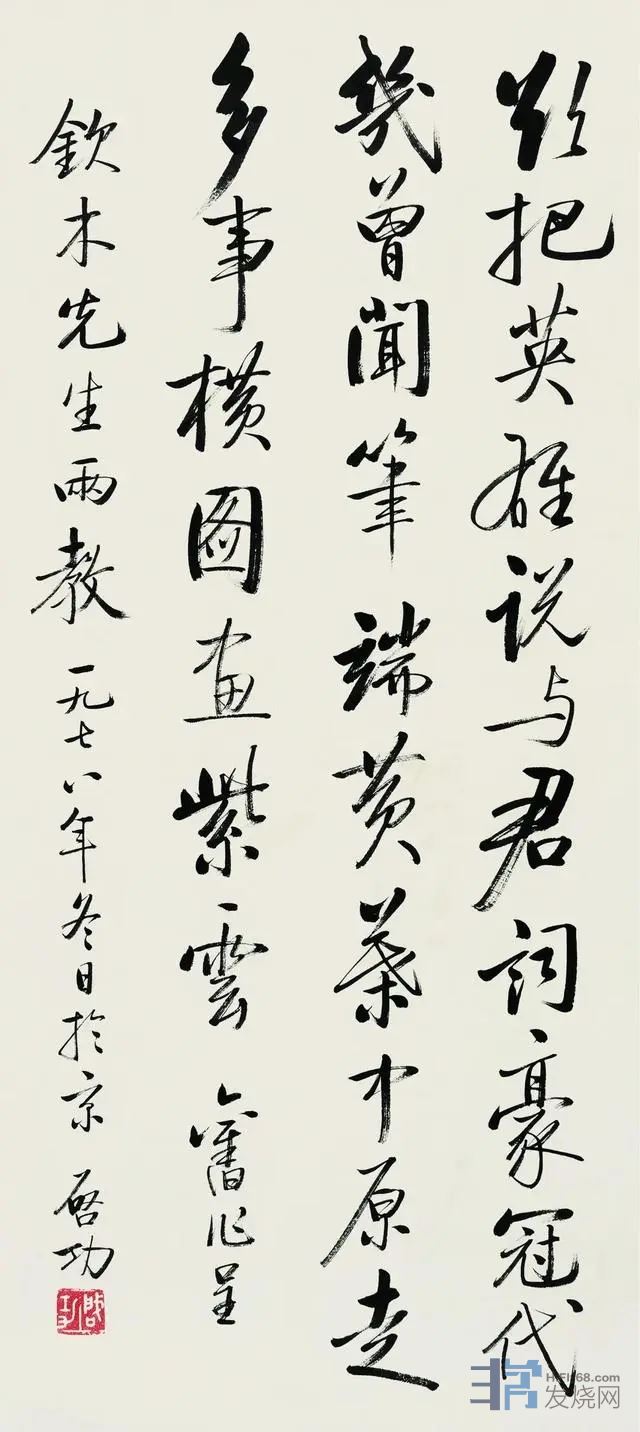 欲把英雄说与君词豪冠代
幾曾聞筆端黄葉中原走
多事横图画紫雲 舊作呈
欽木先生兩教 一九七八年冬日於京 啓功
HiFi168.com
发烧网